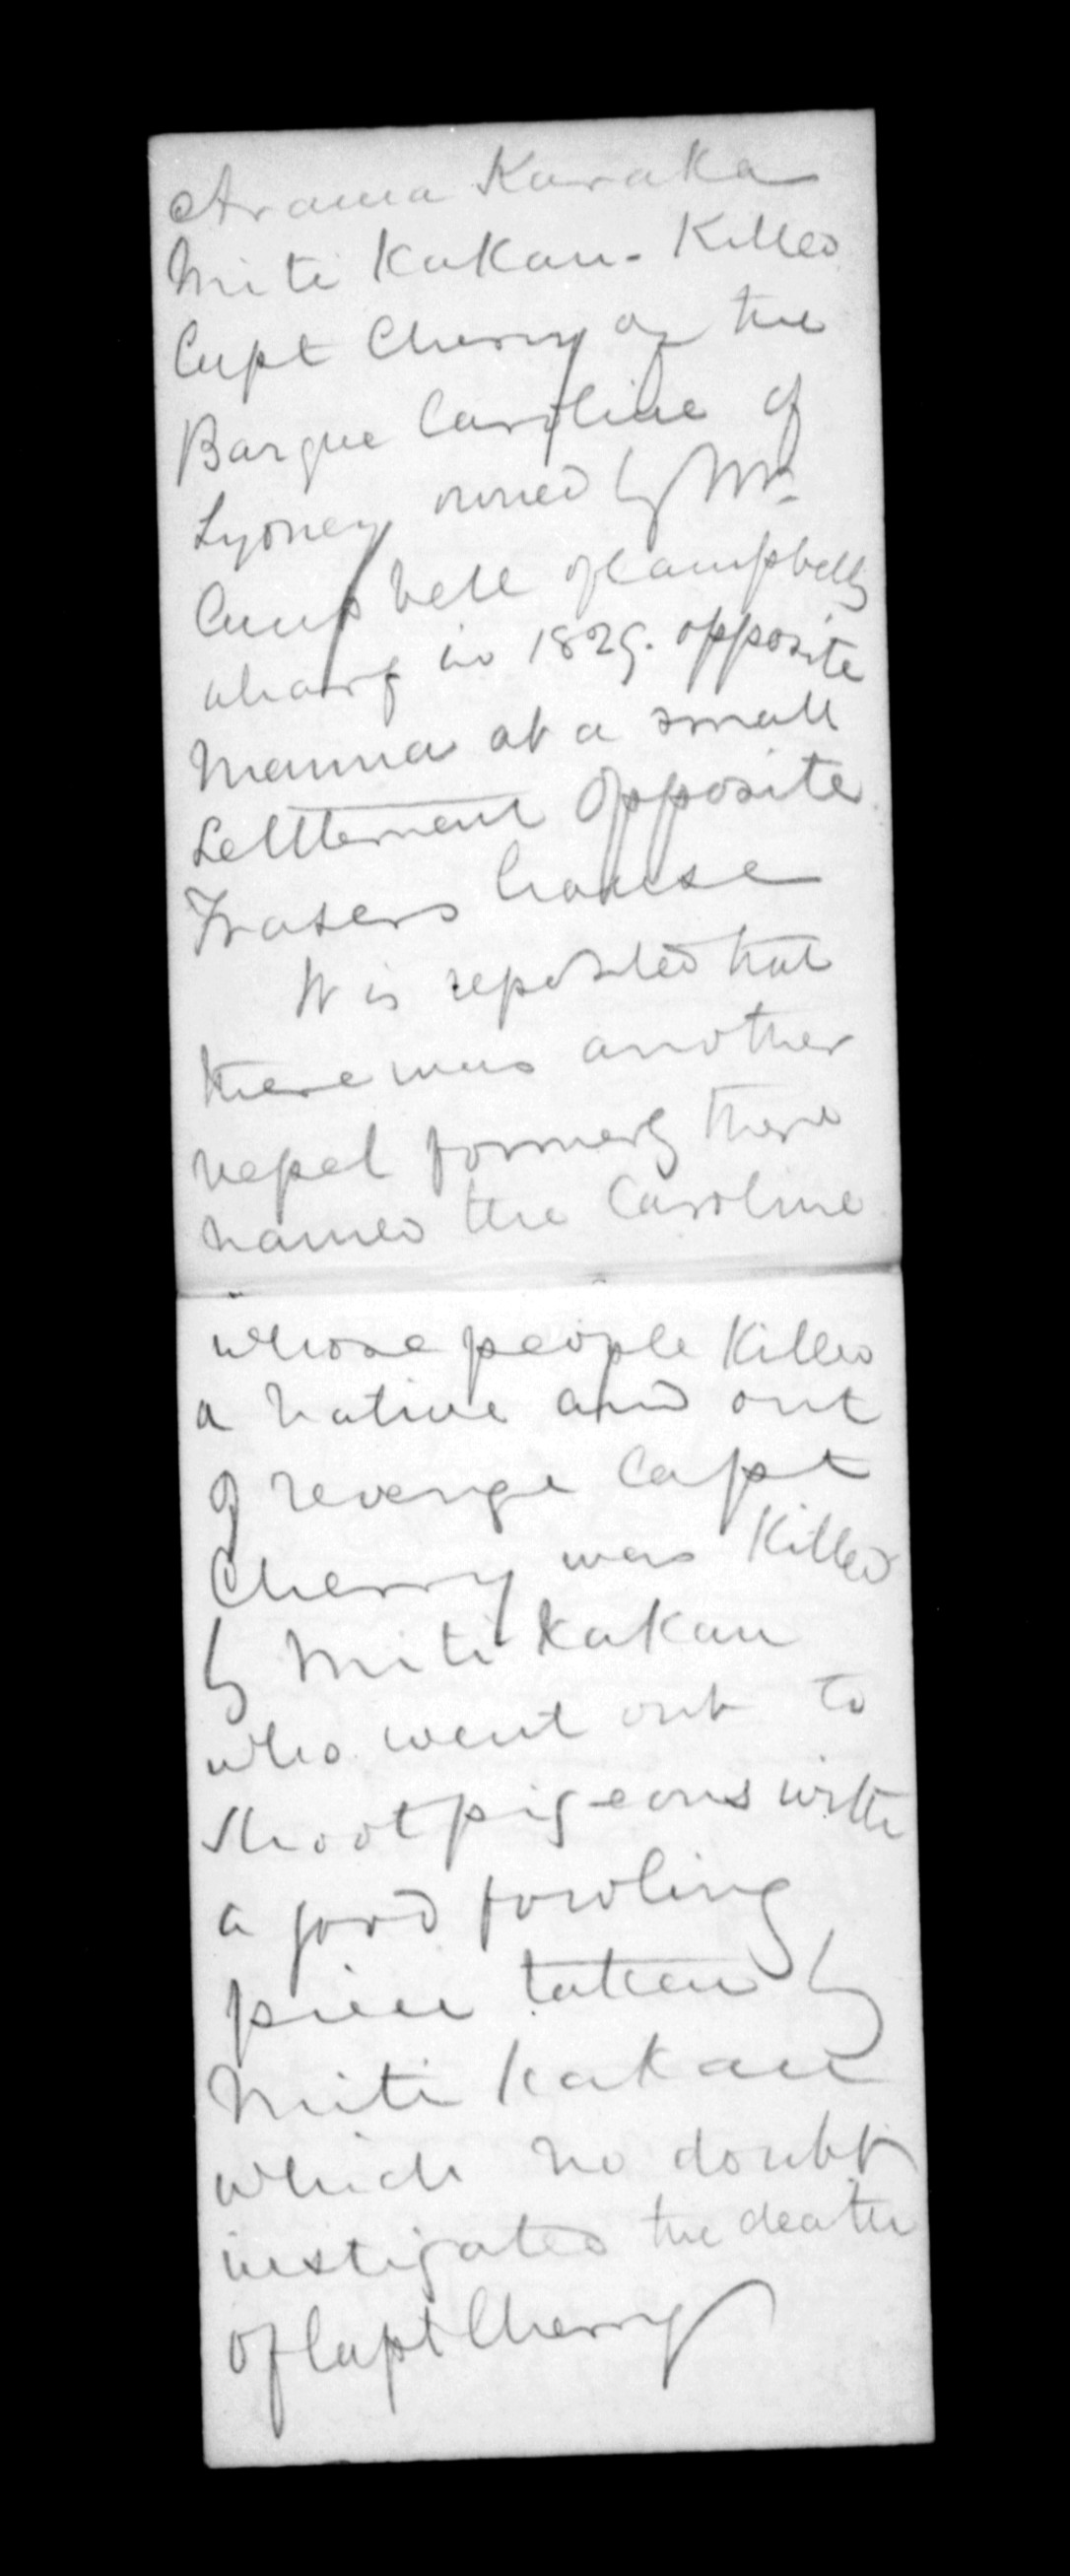 Arama Karaka
Miti Kakau - Killed
Capt Cherry of the
Barque Caroline of
Sydney owned by Mr
Campbell of Campbells
wharf in 1829. opposite
Manna at a small
Settlement Opposite
Frasers house
It is reported that
there was another
vessel formerly there
named the Caroline
whose people Killed
a native and out
of revenge Capt
Cherry was Killed
by Miti Kakau
who went out to
shoot pigeons with
a good fowling
piece taken by
Miti Kakau
which no doubt
instigated the death
of Capt Cherry